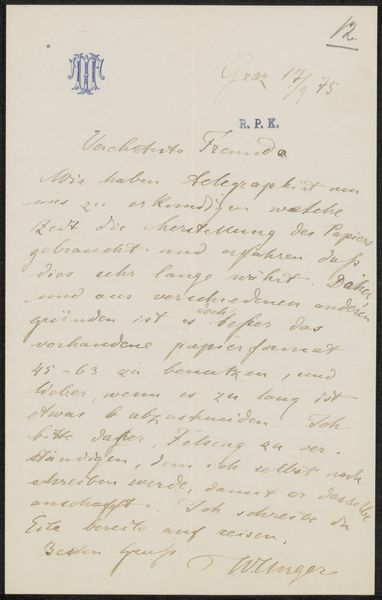 12
Graz 17/9 45
R. P. K.
Verehrteste Freunde
Wir haben telegraphirt um
uns zu erkundigen welche
Zeit die Herstellung des Papiers
gebraucht und erfahren daß
dies sehr lange währt. Daher
und aus verschiedenen anderen
gründen ist es doch beßer das
vorhandene papierformat
45-63 zu benutzen, und
lieber, wenn es zu lang ist
etwas b abzuschneiden. Ich
bitte daher, Felsing zu ver-
ständigen, dem ich selbst noch
schreiben werde, damit er dasselbe
anschafft. Ich schreibe in
Eile bereits auf reisen,
Besten Gruß
W. Unger